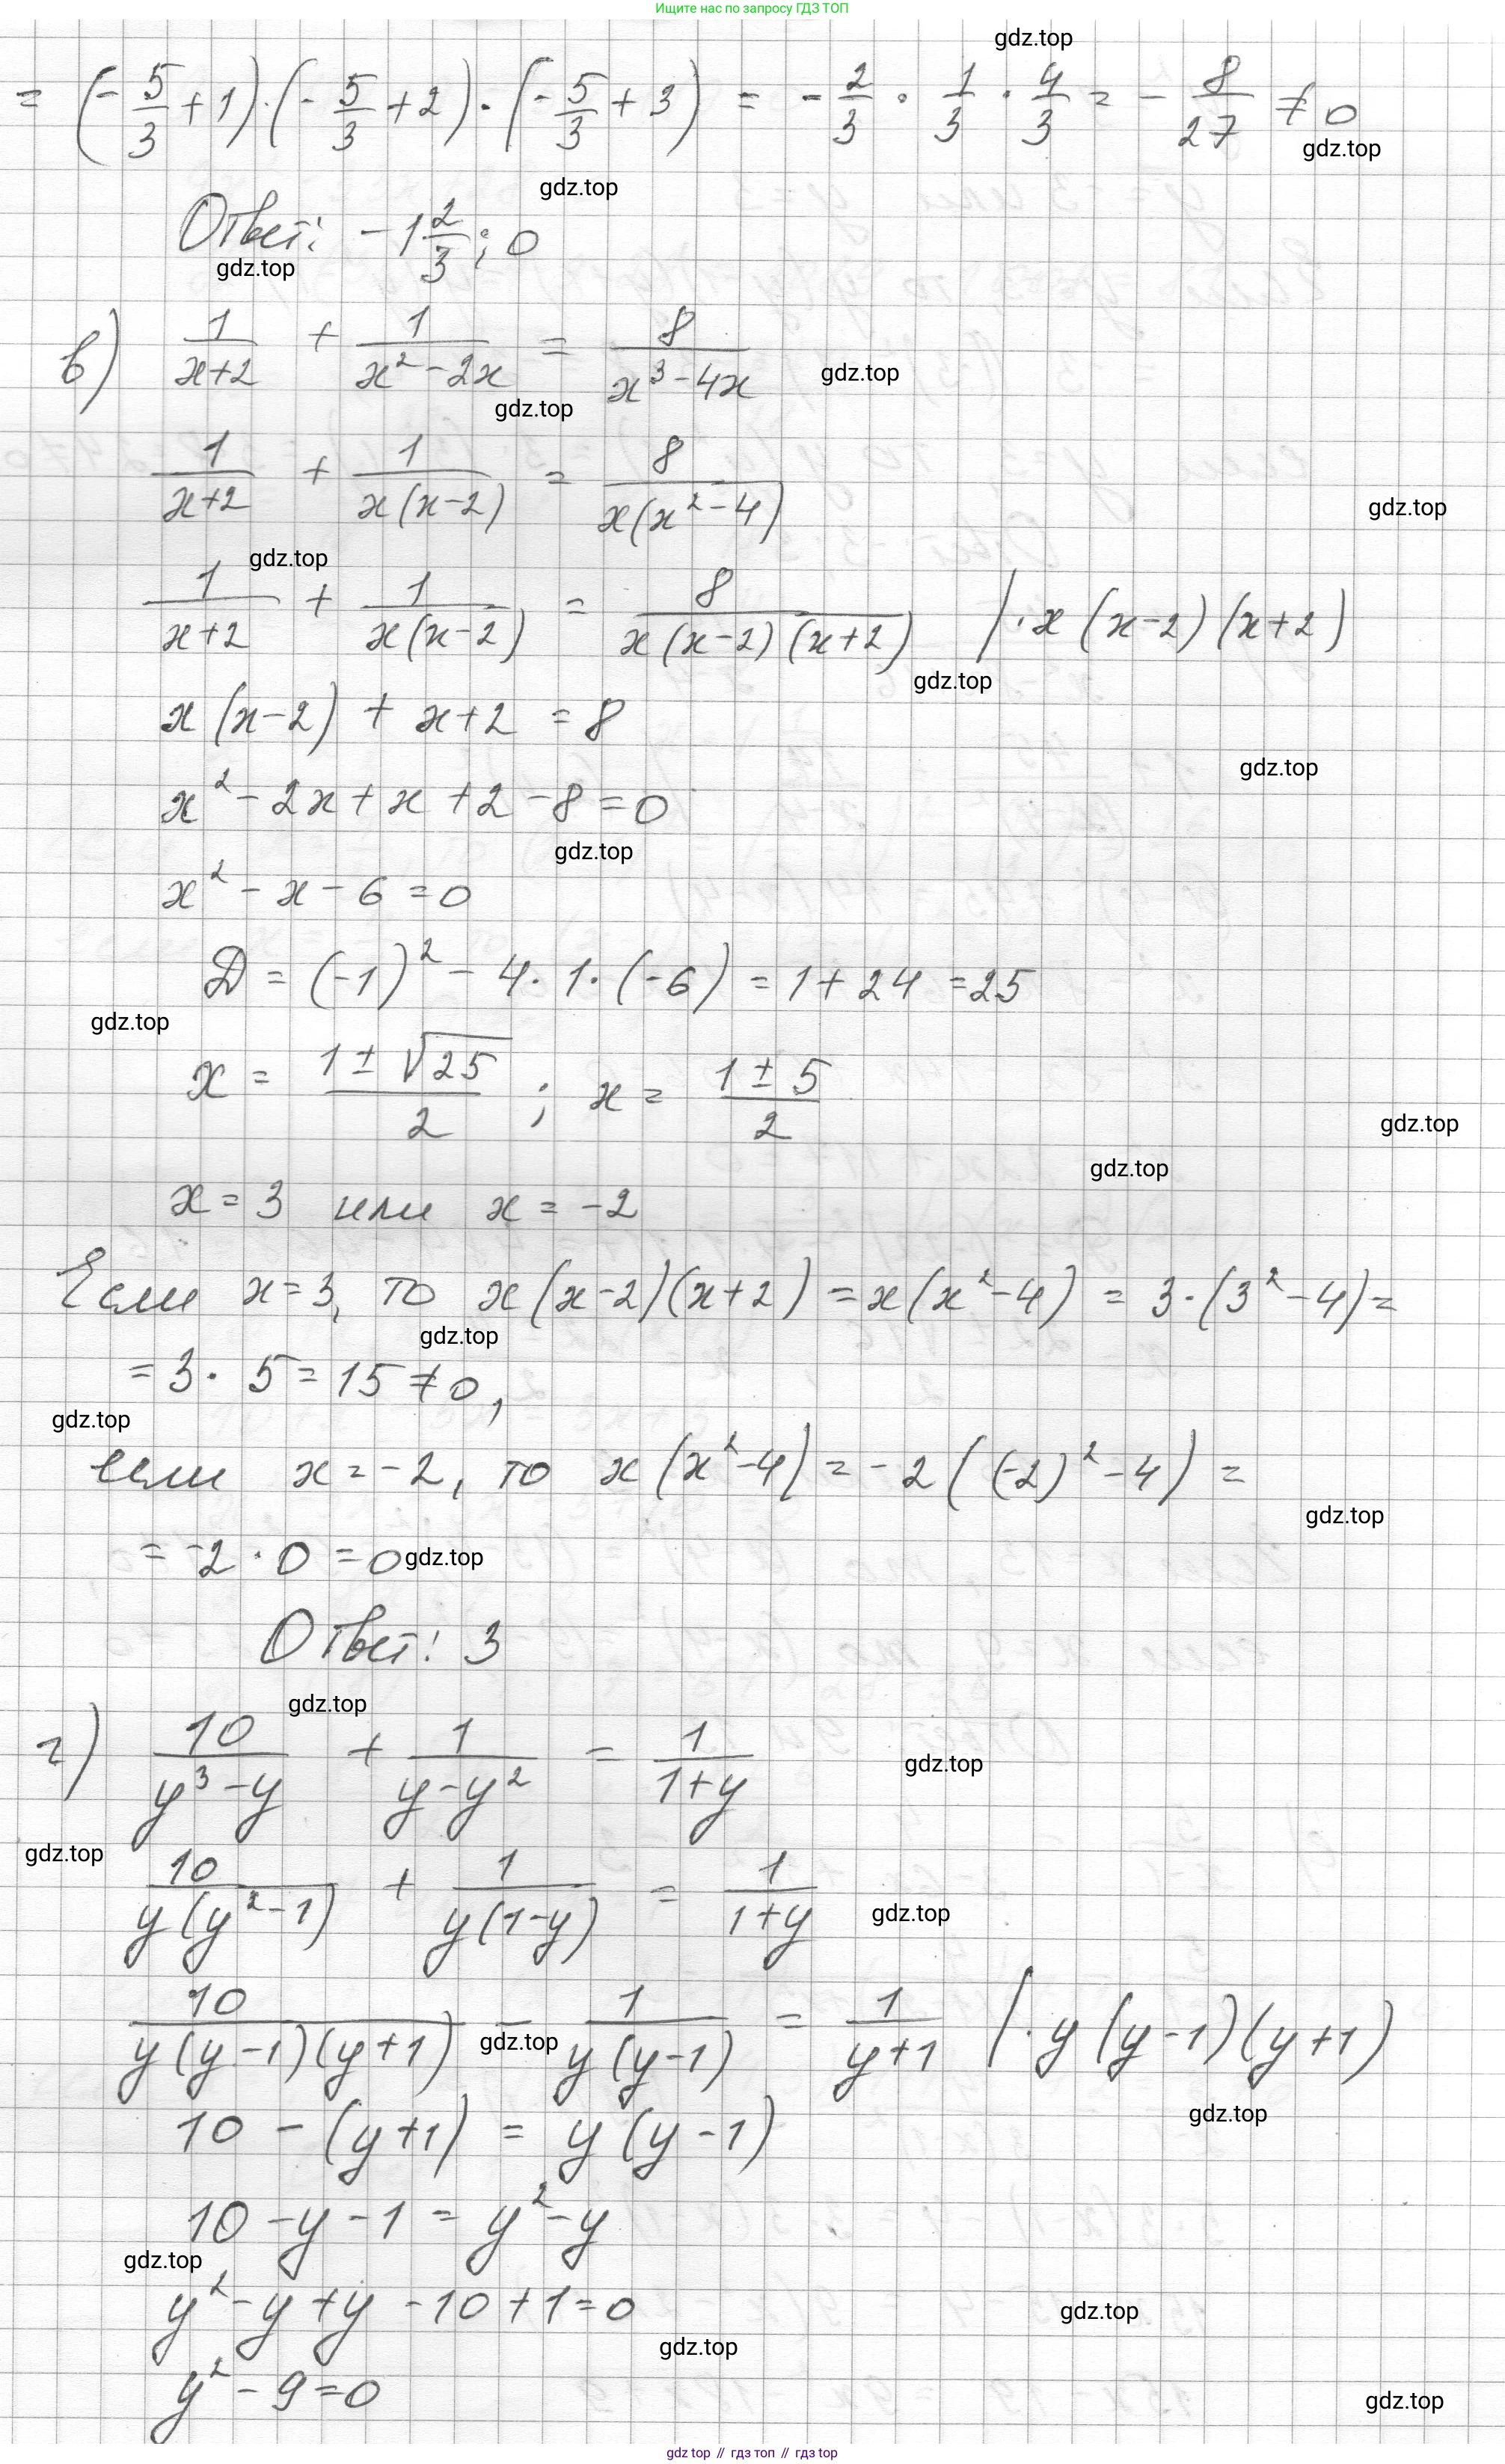 Ищите нас по запросу ГДЗ ТОП
gdz.top
= (-5/3 + 1)·(-5/3 + 2)·(-5/3 + 3) = -2/3 · 1/3 · 4/3 = -8/27 ≠ 0
gdz.top
gdz.top
Ответ: -1 2/3; 0
gdz.top
в) 1/(x+2) + 1/(x²-2x) = 8/(x³-4x)
gdz.top
gdz.top
1/(x+2) + 1/(x(x-2)) = 8/(x(x²-4))
gdz.top
gdz.top
1/(x+2) + 1/(x(x-2)) = 8/(x(x-2)(x+2)) | · x(x-2)(x+2)
gdz.top
x(x-2) + x+2 = 8
gdz.top
x² - 2x + x + 2 - 8 = 0
gdz.top
x² - x - 6 = 0
D = (-1)² - 4·1·(-6) = 1 + 24 = 25
gdz.top
x = (1 ± √25)/2 ; x = (1 ± 5)/2
gdz.top
gdz.top
x = 3 или x = -2
Если x = 3, то x(x-2)(x+2) = x(x²-4) = 3·(3²-4) =
gdz.top
= 3 · 5 = 15 ≠ 0,
gdz.top
если x = -2, то x(x²-4) = -2((-2)²-4) =
gdz.top
= -2 · 0 = 0 gdz.top
Ответ: 3
gdz.top
г) 10/(y³-y) + 1/(y-y²) = 1/(1+y)
gdz.top
gdz.top
10/(y(y²-1)) + 1/(y(1-y)) = 1/(1+y)
gdz.top
10/(y(y-1)(y+1)) - 1/(y(y-1)) = 1/(y+1) | · y(y-1)(y+1)
gdz.top
gdz.top
10 - (y+1) = y(y-1)
10 - y - 1 = y² - y
gdz.top
y² - y + y - 10 + 1 = 0
gdz.top
gdz.top
y² - 9 = 0
gdz.top
gdz top // гдз топ // gdz top